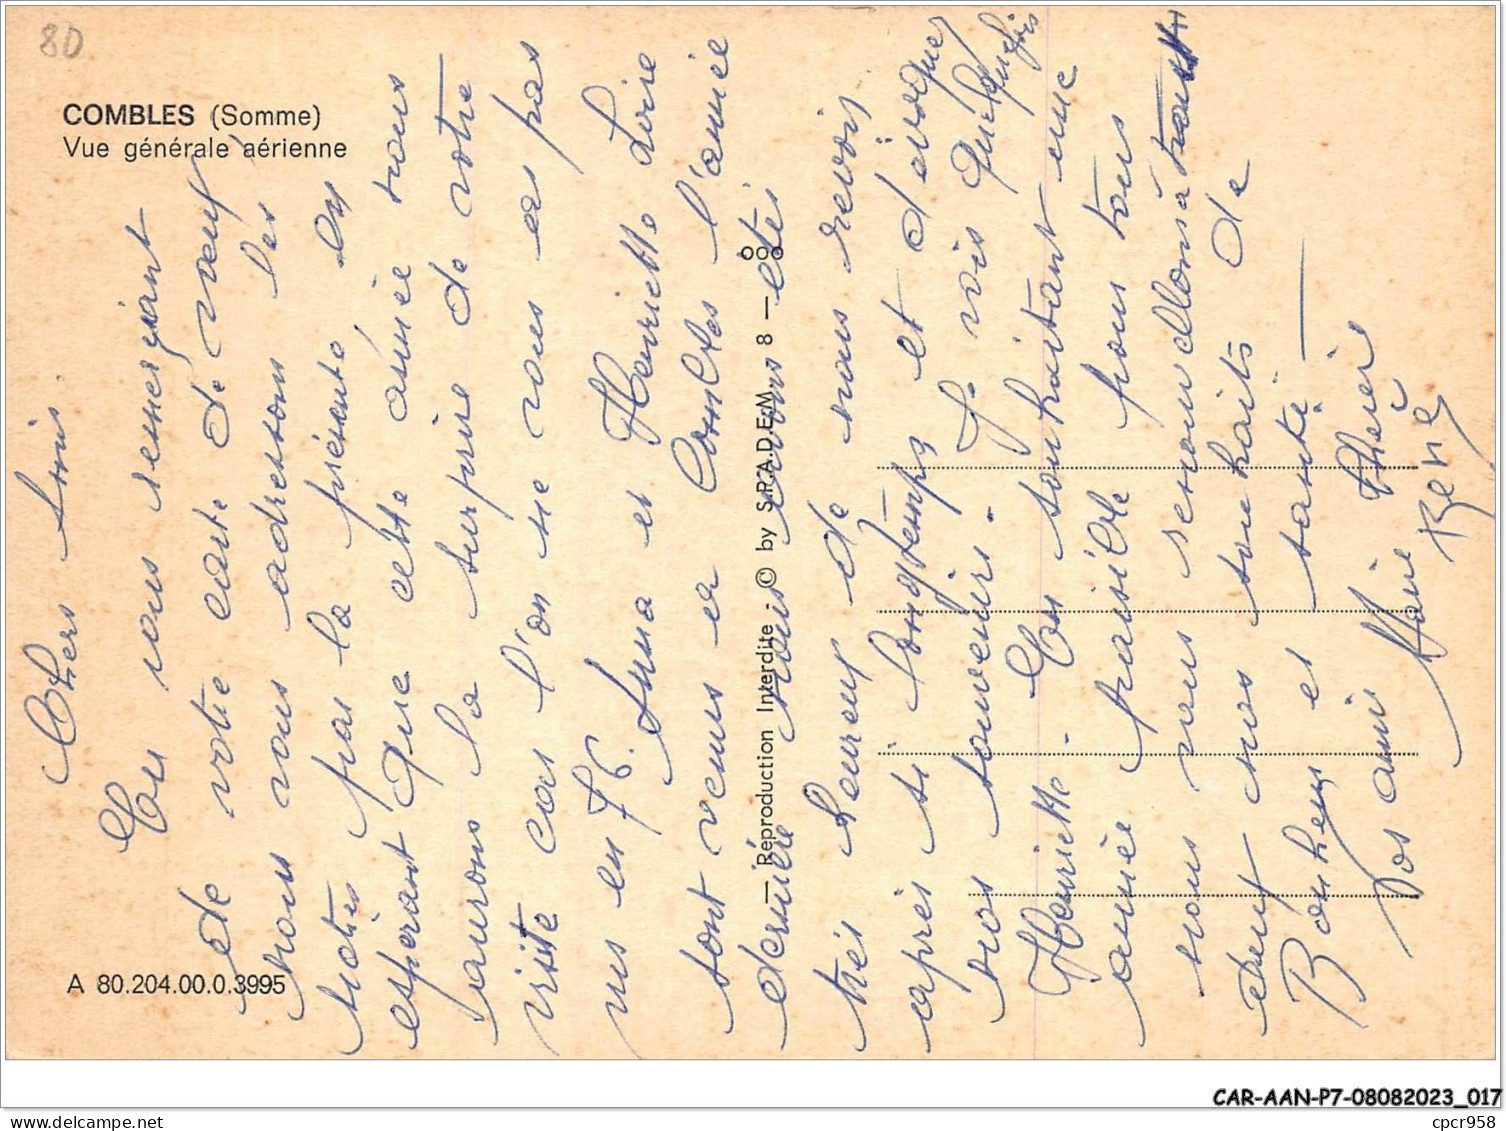 80
COMBLES (Somme)
Vue générale aérienne
Chers Amis.
En vous remerciant
de votre carte de vœux
nous vous adressons les
notres par la présente en
espérant que cette année nous
aurons la surprise de votre
visite car l'on ne vous as pas
vus en 76. Anna et Henriette Loire
sont venus a Combles l'année
dernière nous avons étés
très heureux de nous revoir
après si longtemps et d'évoquer
nos souvenirs - Je vois quelquefois
Henriette - En souhaitant une
année paisible pour tous
nous vous renouvellons à tous
deux nos souhaits de
Bonheur et santé -
Vos amis Marie Thérèse
René
— Réproduction Interdite - © by S.P.A.D.E.M. 8 —
A 80.204.00.0.3995
CAR-AAN-P7-08082023_017
cpcr958